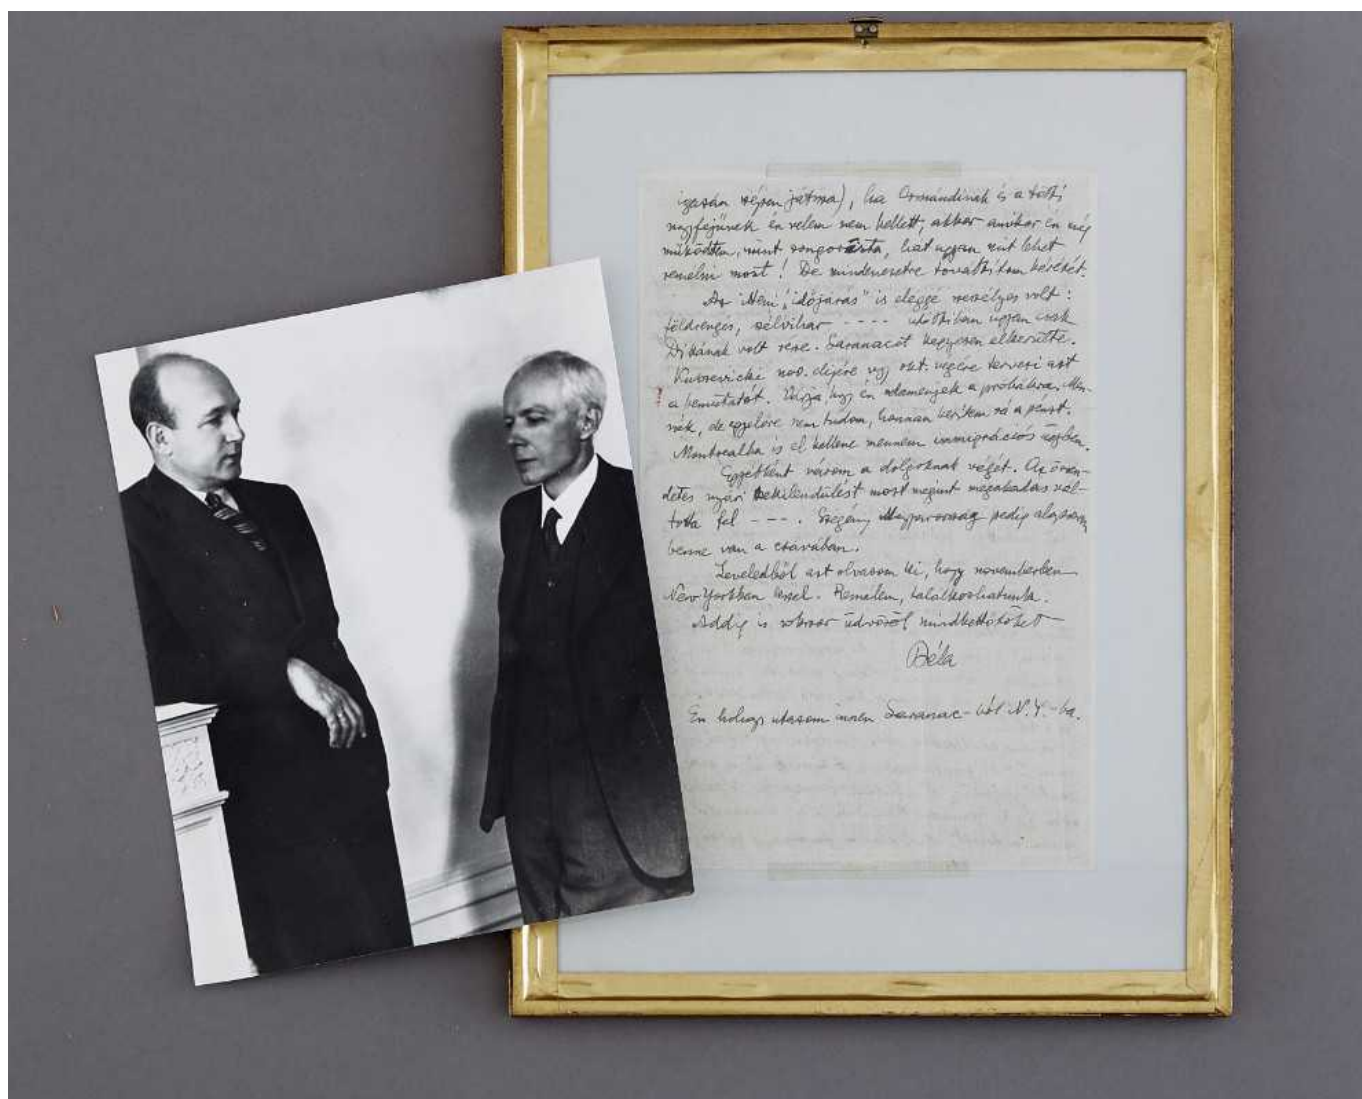 igazán szépen játsza), ha Ormándinak és a többi
nagyfejünek én velem nem kellett, akkor amikor én még
működtem, mint zongorista, hát ugyan mit lehet
remélni most! De mindenesetre továbbítom kérését.
Az idéni „időjárás" is eléggé veszélyes volt:
földrengés, szélvihar ---- utóbbiban ugyan csak
Dittának volt része. Saranacot kegyesen elkerülte.
Kussevicki nov. elejére vagy okt. végére tervezi azt
a bemutatót. Várja hogy én odamenjek a próbákra. Men-
nék, de egyelőre nem tudom, honnan kerítem rá a pénzt.
Montrealba is el kellene mennem immigrációs ügyben.
Egyébként várom a dolgoknak végét. Az örven-
detes nyári nekilendülést most megint megakadás vál-
totta fel ---. Szegény Magyarország pedig alaposan
benne van a csávában.
Leveledből azt olvasom ki, hogy novemberben
New Yorkban leszel. Remélem, találkozhatunk.
Addig is sokszor üdvözöl mindkettőtöket
Béla
Én holnap utazom innen Saranac-ból N.Y.-ba.